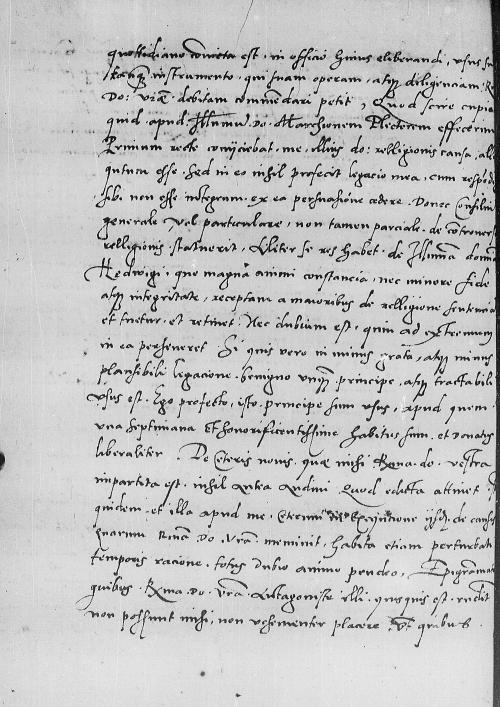 quottidiano convicta est, in officio huius eliberandi, usus su
tanq instrumento, qui suam operam, atq diligenciam, R
Do: Vrae debitam commendari petit, Quod scire cupia
quid apud Illumu Do. Marchionem Electorem effecerim
Primum recte coniiciebat, me illius do: relligionis causa, all
quutum esse. Sed in eo nihil profecit legacio mea, cum respōd
sib. non esse integrum ex ea persuasione cedere. Donec Consiliu
generale vel particulare, non tamen parciale de cōtrovers
relligionis statuerit, Aliter se res habet de Illma dom
Hedwigi, que magna animi constancia, nec minore fide
atq integritate, receptam a maioribus de relligione sentencia
et tuetur et retinet, Nec dubium est, quin ad extremum
in ea perseveret. Si quis vero in minus grata, atq minus
plausibili legacione, benigno unq principe, atq tractabili
usus est. Ego profecto, isto principe sum usus, apud quem
una septimana et honorificentissime habitus sum, et donatus
liberaliter. De Ceteris novis, quae mihi Rma do. vestra
impartita est, nihil antea audivi. Quod edicta attinet,
quidem et illa apud me. Ceterum in executione de caus
quarum Rma Do. Vra meminit, habita etiam perturbati
temporis racione, totus dubio animo pendeo, Epigramat
quibus Rma Do. Vra Antagoniste illi, quisquis est, respōdit
non possunt mihi, non vehementer placere. Ut quibus